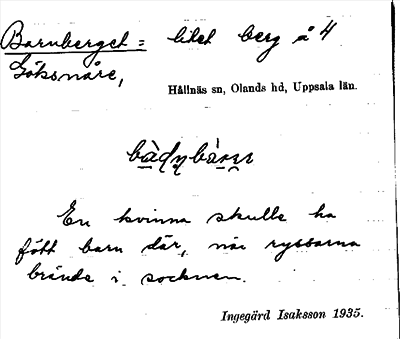 Barnberget = litet berg å 4
Göksnåre,
Hållnäs sn, Olands hd, Uppsala län.
En kvinna skulle ha
fött barn där, när ryssarna
brände i socknen.
Ingegärd Isaksson 1935.